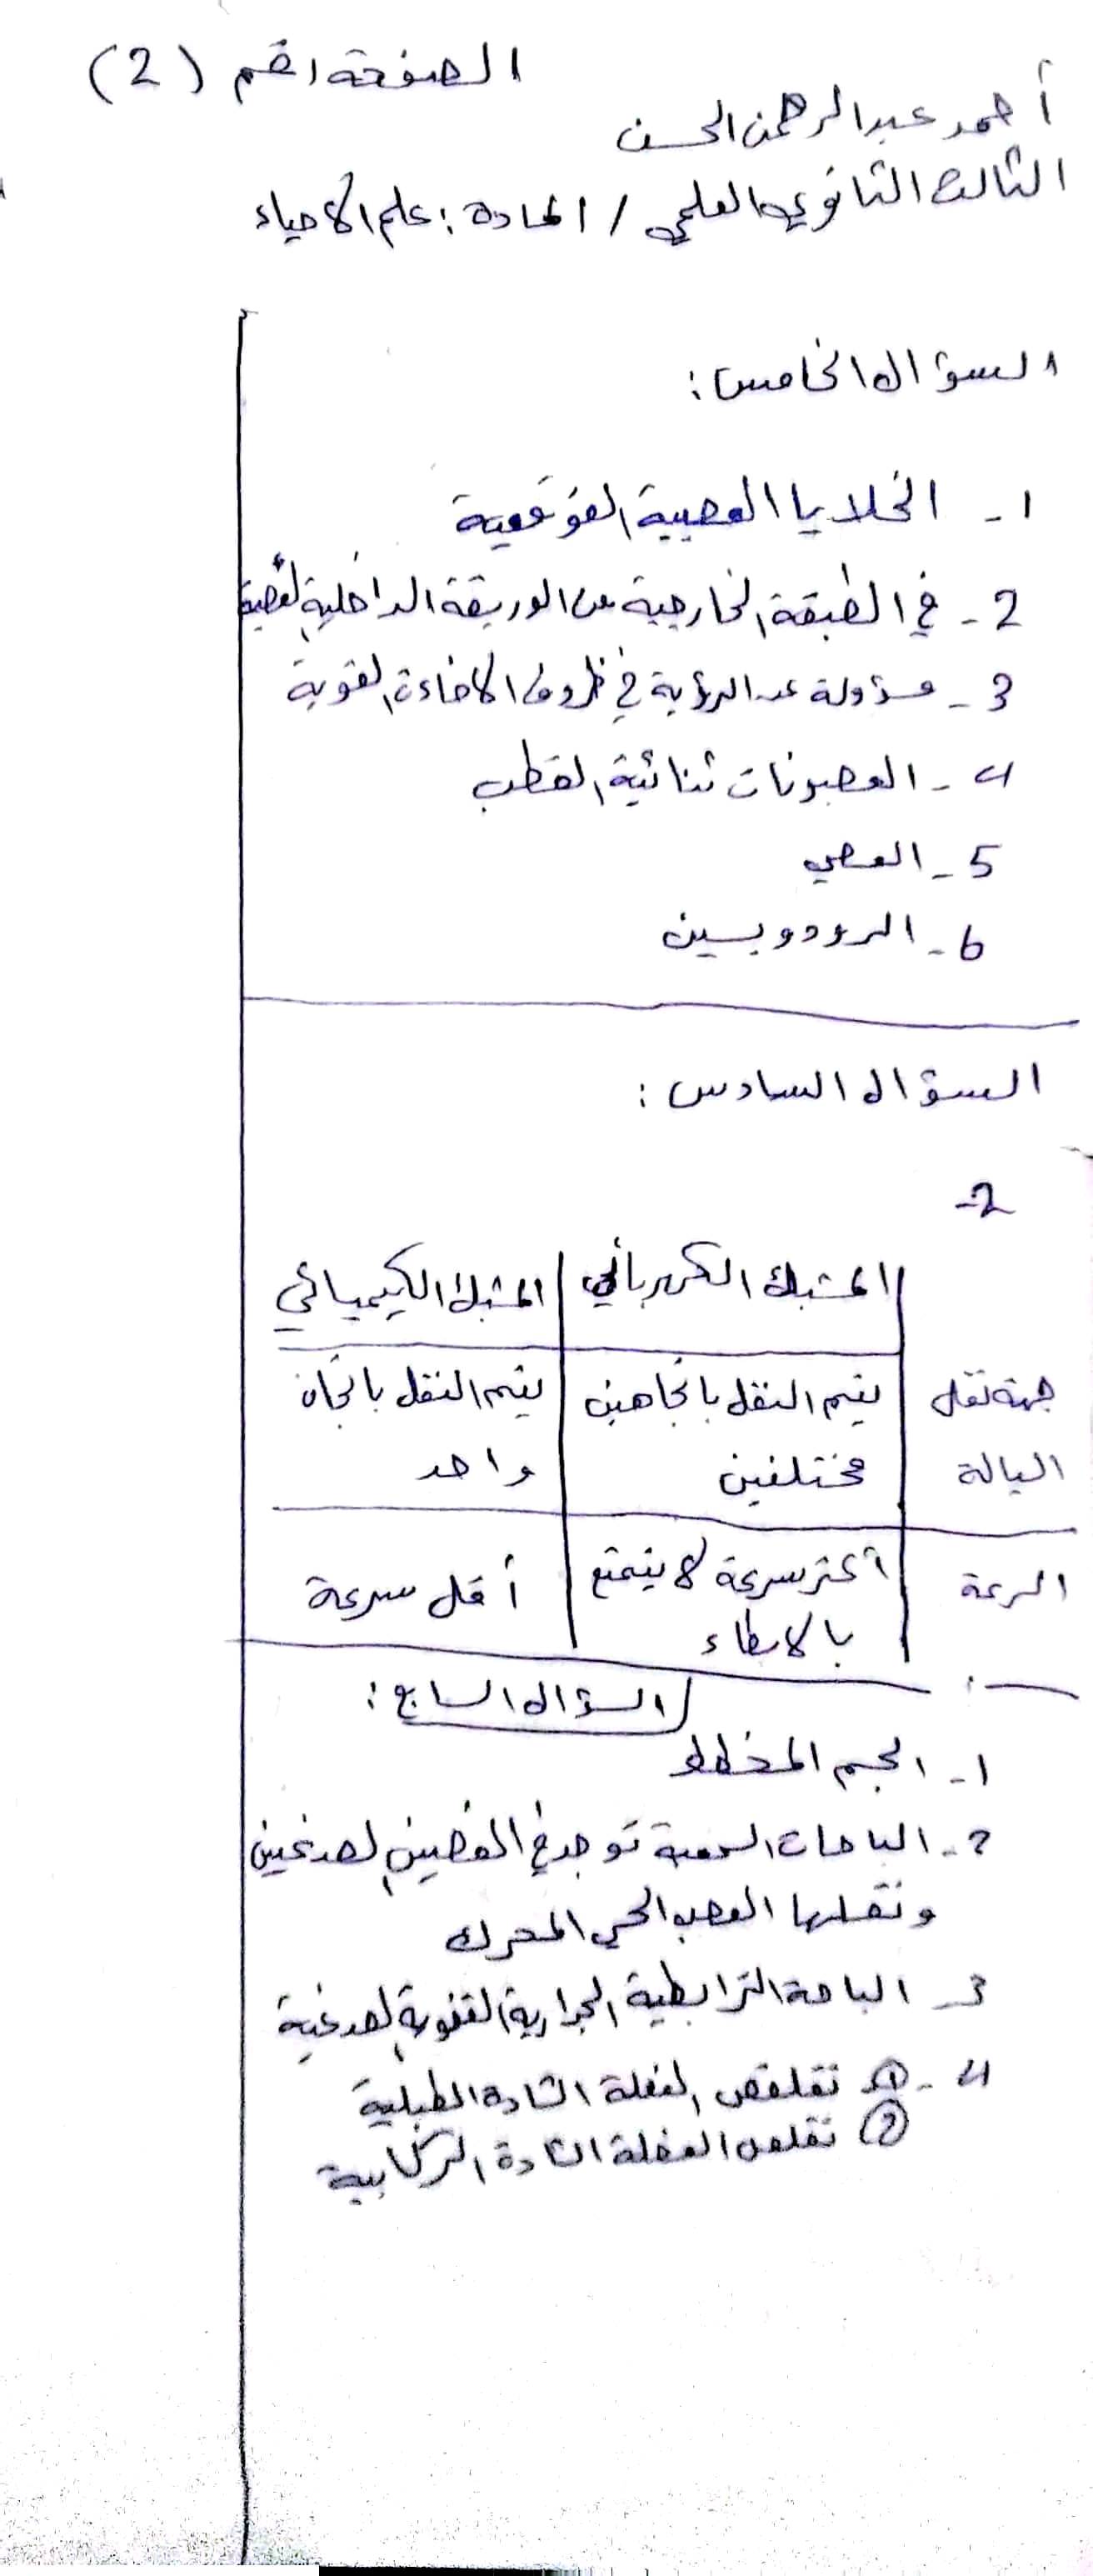 الصفحة رقم (2)
أحمد عبد الرحمن الحسن
الثالث الثانوي العلمي / المادة : علم الاحياء
السؤال الخامس :
1- الخلايا العصبية القوقعية
2- في الطبقة الخارجية من الوريقة الداخلية العصبية
3- مسؤولة عن الرؤية في ظروف الاضاءة القوية
4- العصبونات ثنائية القطب
5- العصي
6- الرودوبسين
السؤال السادس :
2-
المشبك الكهربائي | المشبك الكيميائي
جهة نقل | يتم النقل باتجاهين | يتم النقل باتجاه
السيالة | مختلفين | واحد
السرعة | أكثر سرعة لا يتمتع | أقل سرعة
بالابطاء
السؤال السابع :
1- الجسم المخطط
2- الباحات السمعية توجد في الفصين الصدغيين
ونقلها العصب الحسي المحرك
3- الباحة الترابطية الجدارية القفوية الصدغية
4- ① تقلص العضلة الشادة الطبلية
② تقلص العضلة الشادة الركابية